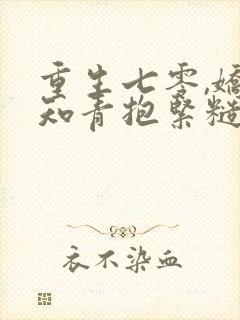 重生七零,娇
知青抱紧糙
衣不染血